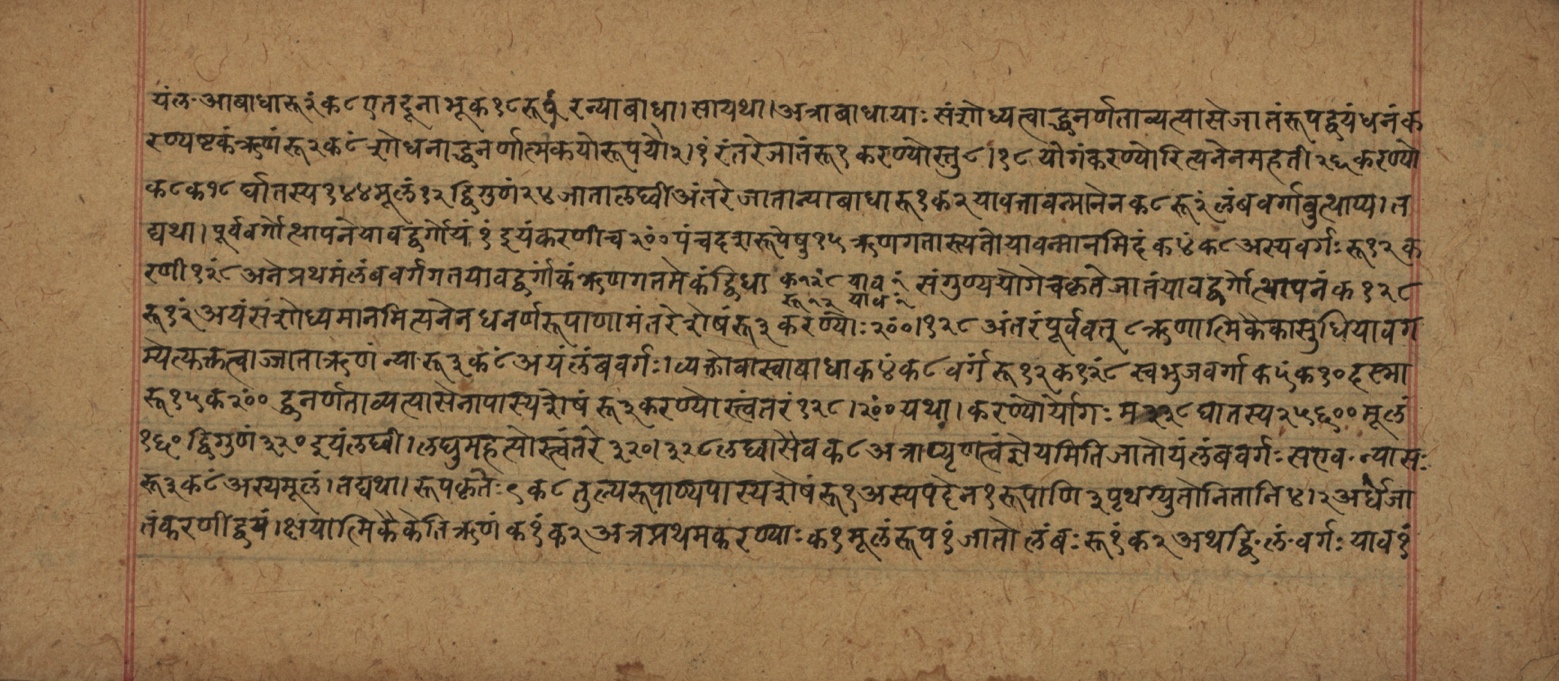 यंल·आबाधारू२ं क८एतदूनाभूक१८रू र न्याबाधा। सायथा। अत्राबाधायाः संशोध्यत्वाद्धनर्णताव्यत्यासेजातंरूपद्वयंधनंक
रण्यष्टकंऋणंरू२क८ं शोधनाद्धनर्णात्मकयोरूपयो२।१ं रंतरेजातंरू१ करण्योस्तु८।१८ योगंकरण्योरित्यनेनमहती२६करण्यो
क८क१८र्घातस्य१४४मूलं१२द्विगुणं२४जातालघ्वीअंतरेजातान्याबाधारू१क२यावत्तावन्मानेनक८रू२ं लंबवर्गावुत्थाप्य।त
द्यथा।पूर्ववर्गोत्थापनेयावद्वर्गोयं १ं इयंकरणीच२०ं०पंचदशरूपेषु१५ऋणगतास्त्यतोयावन्मानमिदंक४ंक८अस्यवर्गः रू१२क
रणी१२ं८अनेप्रथमंलंबवर्गगतयावद्वर्गांकंऋणगतमेकंद्विधा क१२ं८ याव१ं संगुण्ययोगेचकृतेजातंयावद्वर्गोत्थापनंक१२८
रू१२ याव१ं
रू१२ं अयंसंशोध्यमानमित्यनेनधनर्णरूपाणामंतरेशेषंरू३करण्योः२०ं०।१२८अंतरंपूर्ववत्तु८ऋणात्मिकैकासुधियावग
म्येत्यक्तत्वाज्जाताऋणं न्या·रू३क८ं अयंलंबवर्गः।व्यक्तोवास्वाबाधाक४ंक८वर्ग रू१२क१२ं८स्वभुजवर्गाक५ंक१०ह्रस्मा
रू१५क२०ं० द्धनर्णताव्यत्यासेनापास्यशेषं रू३करण्योस्त्वंतरं१२८।२०ं०यथा।करण्योर्योगः म३२८घातस्य२५६००मूलं
१६०द्विगुणं३२०इयंलघ्वी।लघुमहत्योस्त्वंतरे३२०।३२८लघ्वासैवक८अत्राप्यृणत्वंज्ञेयमितिजातोयंलंबवर्गः सएव·न्यासः
रू३क८ं अस्यमूलं।तद्यथा।रूपकृतेः९क८तुल्यरूपाण्यपास्यशेषंरू१अस्यपदेन१रूपाणि३पृथग्युतोनितानि४।२अर्धेजा
तंकरणीद्वयं।क्षयात्मिकैकेतिऋणं क१ंक२अत्रप्रथमकरण्याः क१मूलंरूप१ं जातो लंबः रू१ंक२अथद्वि·लं·वर्गः याव१ं